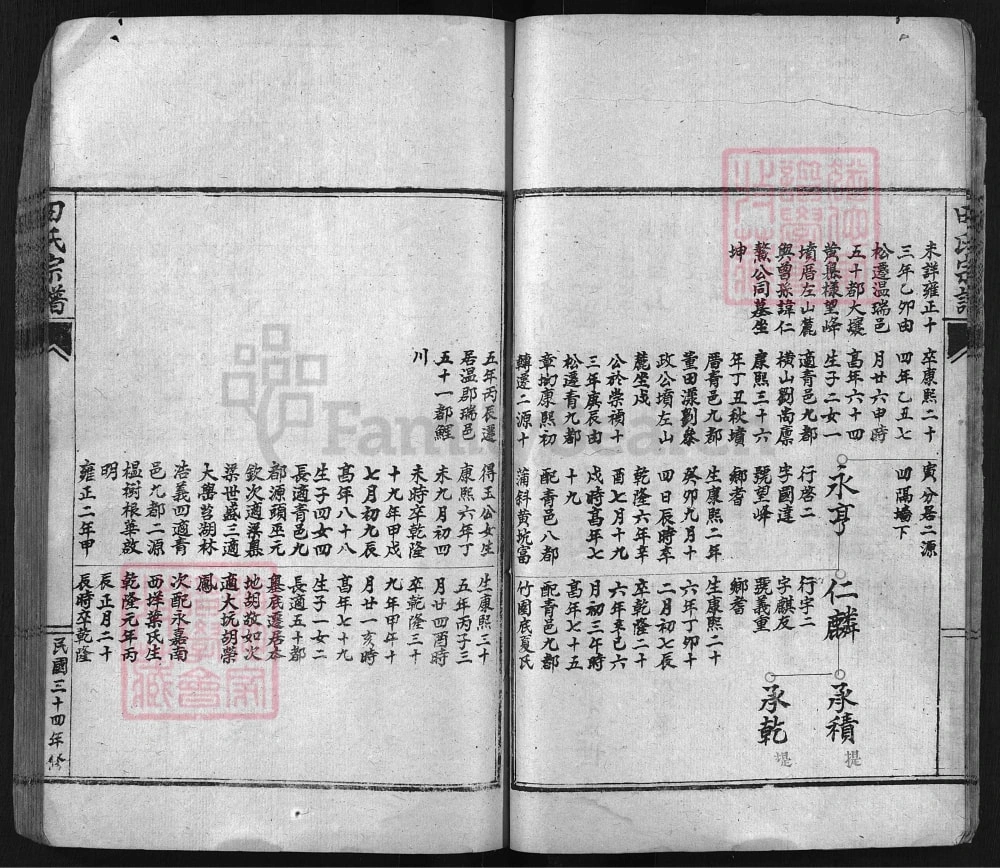 田氏宗譜
未詳雍正十
三年乙卯由
松遷温瑞邑
五十都大壤
黄㙪様望峰
墳厝左山麓
與曾孫諱仁
鰲公同墓坐
坤
卒康熙二十
四年乙丑七
月廿六申時
高年六十四
生子二女一
適青邑九都
横山劉尚廪
康熙三十六
年丁丑秋墳
厝青邑九都
董田漈劉叅
政公墳左山
麓坐戊
公於崇禎十
三年庚辰由
松遷青九都
章坳康熙初
轉遷二源十
五年丙辰遷
居温郡瑞邑
五十一都鯉
川
寅分居二源
四隔墻下
永亨
行啓二
字國達
號望峰
鄉耆
生康熙二年
癸卯九月十
四日辰時卒
乾隆六年辛
酉七月十九
戌時高年七
十九
配青邑八都
蒲斜黄坑富
得玉公女生
康熙六年丁
未九月初四
未時卒乾隆
十九年甲戌
七月初九辰
高年八十八
生子四女四
長適青邑九
都源頭巫元
欽次適梁㷩
梁世盛三適
大嶨筥湖林
浩義四適青
邑九都二源
榲樹根葉故
明
雍正二年甲
仁麟
行宇二
字麒友
號義重
鄉耆
生康熙二十
六年丁卯十
二月初七辰
卒乾隆二十
六年辛巳六
月初三午時
高年七十五
配青邑九都
竹園底夏氏
生康熙三十
五年丙子三
月廿四酉時
卒乾隆三十
九年甲午十
月廿一亥時
高年七十九
生子一女二
長適五十都
基底遷居本
地胡敖如次
適大坑胡榮
鳳
次配永嘉南
西垟葉氏生
乾隆元年丙
辰正月二十
辰時卒乾隆
承積
提
承乾
堤
田氏宗譜
民國三十四年修
FamilySearch